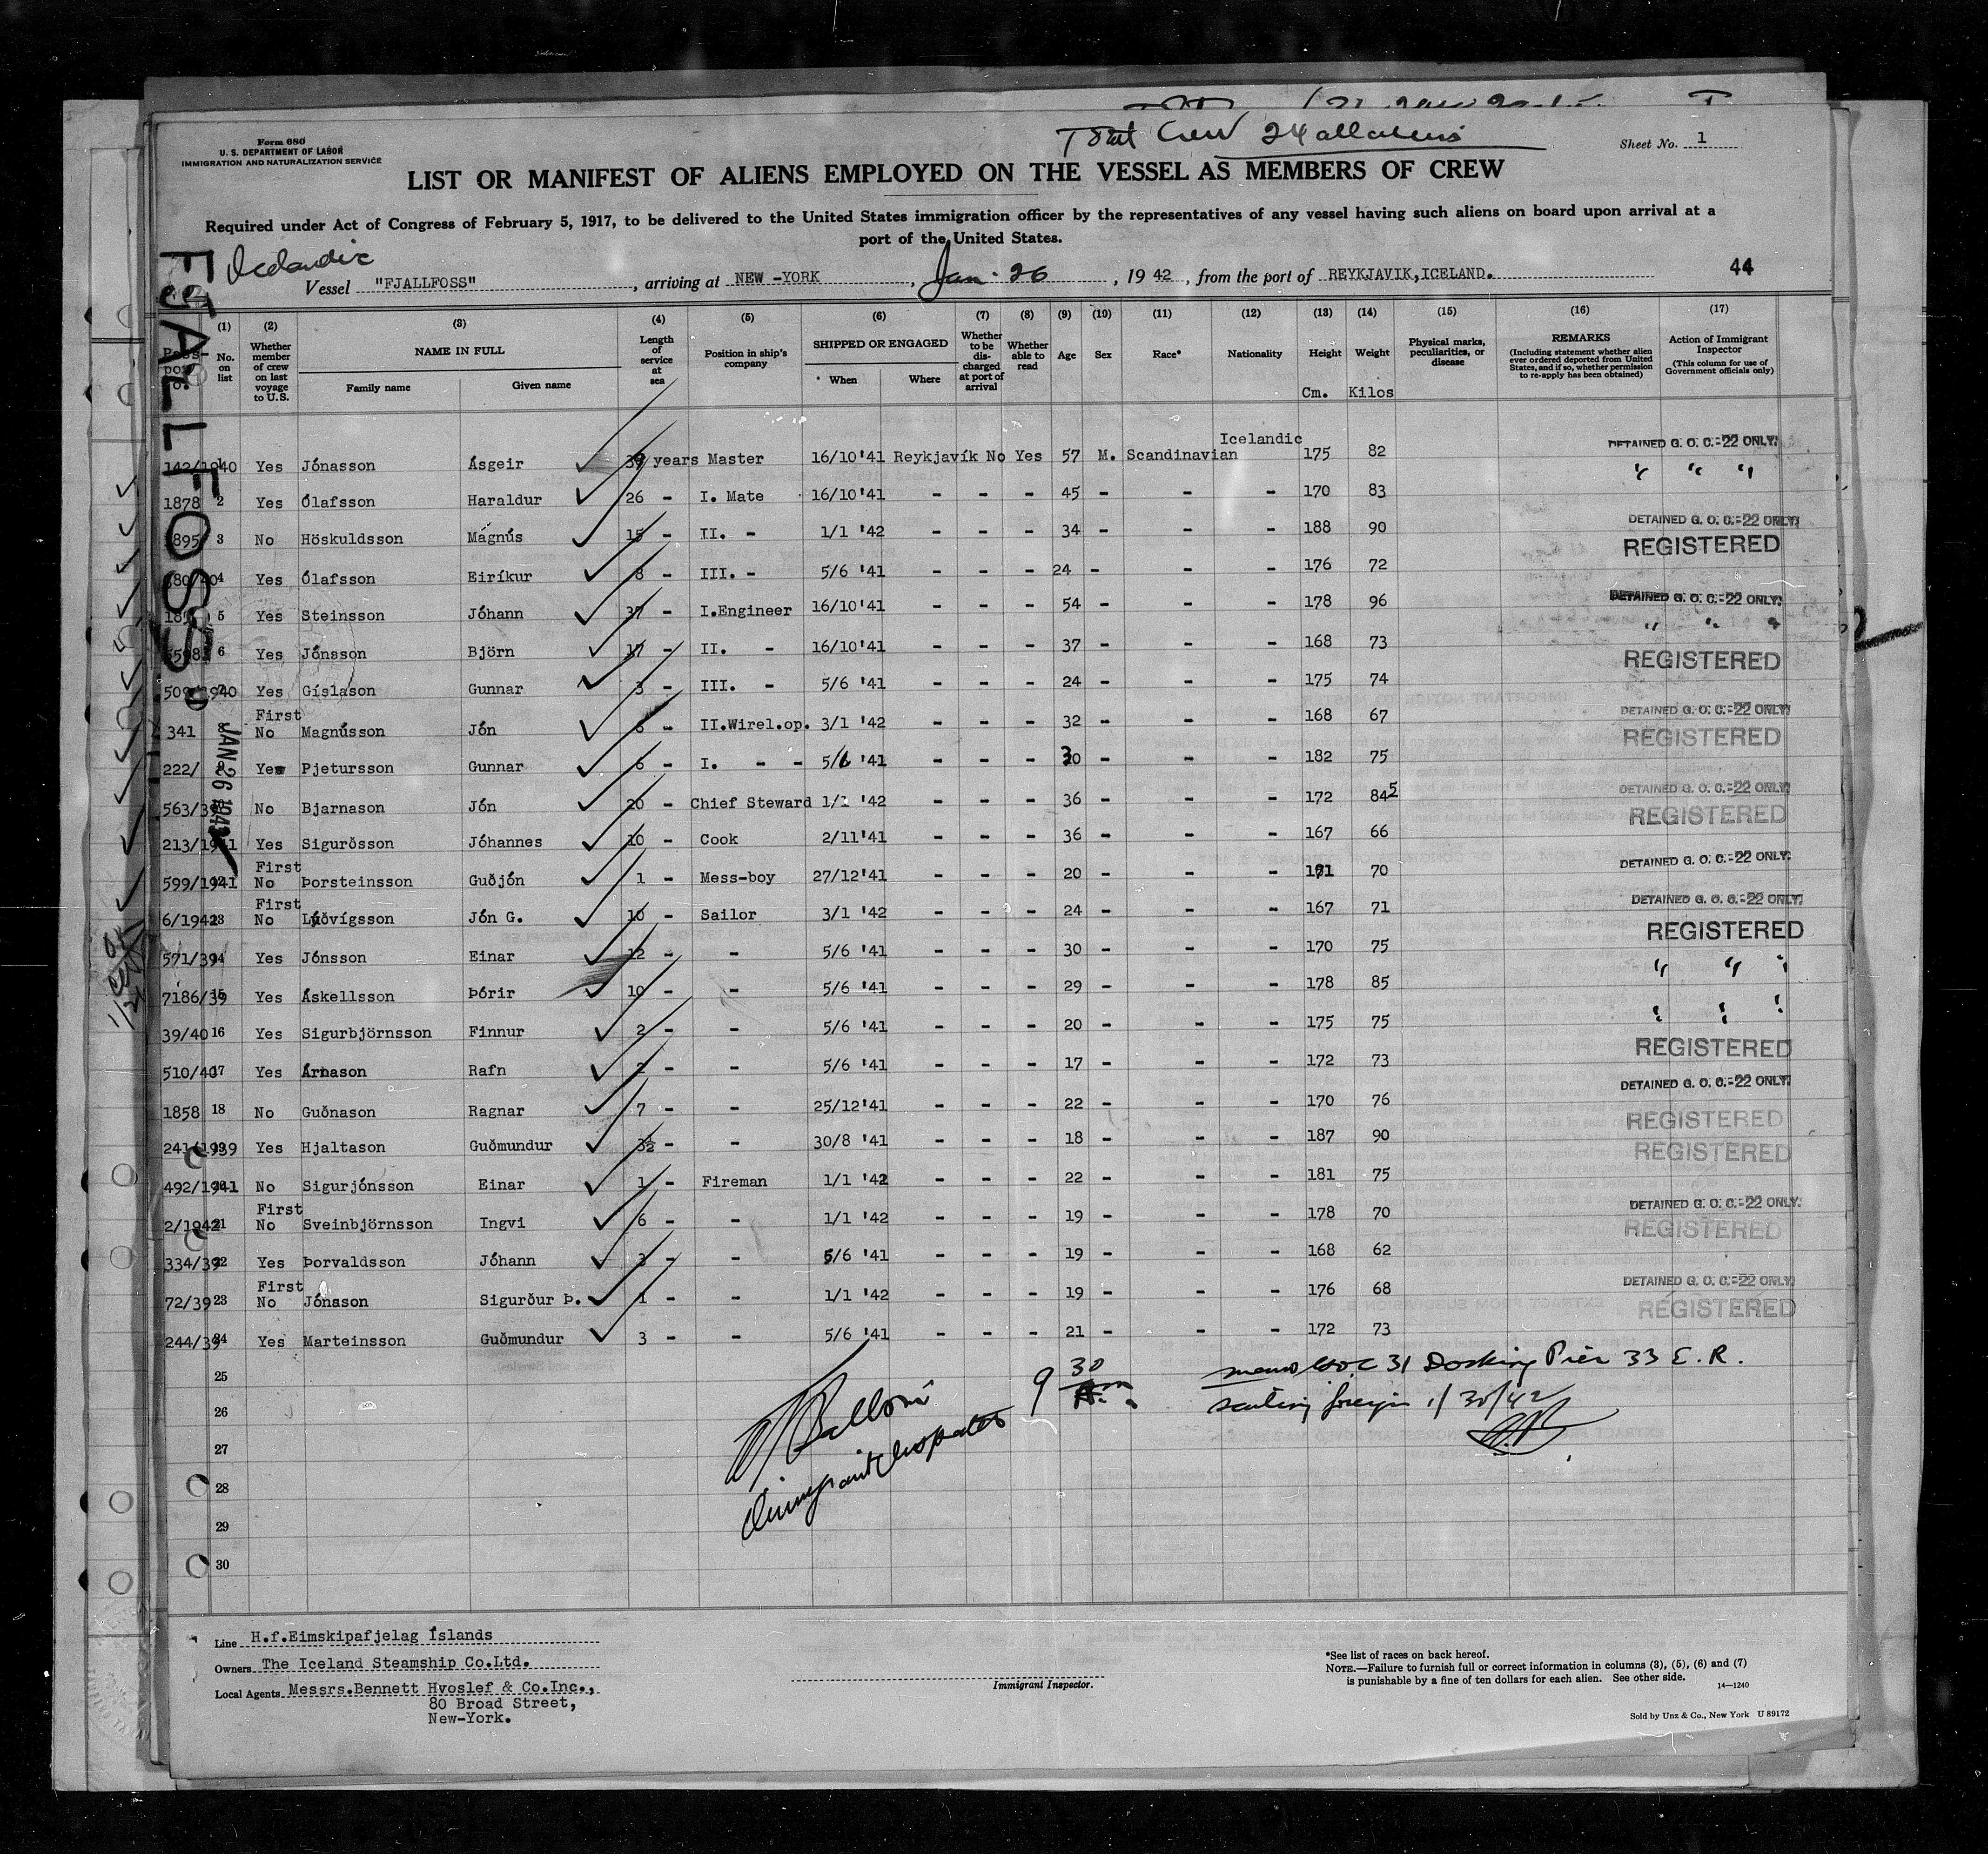 Form 680
U. S. DEPARTMENT OF LABOR
IMMIGRATION AND NATURALIZATION SERVICE
Crew 24 all aliens
Sheet No. 1
LIST OR MANIFEST OF ALIENS EMPLOYED ON THE VESSEL AS MEMBERS OF CREW
Required under Act of Congress of February 5, 1917, to be delivered to the United States immigration officer by the representatives of any vessel having such aliens on board upon arrival at a
port of the United States.
Icelandic
Vessel "FJALLFOSS", arriving at NEW-YORK, Jan. 26, 1942, from the port of REYKJAVIK, ICELAND.
44
FJALLFOSS
JAN 26 1942
(1) (2) (3) (4) (5) (6) (7) (8) (9) (10) (11) (12) (13) (14) (15) (16) (17)
No. on list
Whether member of crew on last voyage to U.S.
NAME IN FULL
Family name
Given name
Length of service at sea
Position in ship's company
SHIPPED OR ENGAGED
When
Where
Whether to be discharged at port of arrival
Whether able to read
Age
Sex
Race*
Nationality
Height
Cm.
Weight
Kilos
Physical marks, peculiarities, or disease
REMARKS
(Including statement whether alien ever ordered deported from United States, and if so, whether permission to re-apply has been obtained)
Action of Immigrant Inspector
(This column for use of Government officials only)
142/1940 1 Yes Jónasson Ásgeir 39 years Master 16/10'41 Reykjavík No Yes 57 M. Scandinavian Icelandic 175 82 DETAINED G. O. C.-22 ONLY.
1878 2 Yes Ólafsson Haraldur 26 - I. Mate 16/10'41 - - - 45 - - - 170 83 " " "
895 3 No Höskuldsson Magnús 15 - II. - 1/1 '42 - - - 34 - - - 188 90 DETAINED G. O. C.-22 ONLY.
4 Yes Ólafsson Eiríkur 8 - III. - 5/6 '41 - - - 24 - - - 176 72 REGISTERED
5 Yes Steinsson Jóhann 37 - I.Engineer 16/10'41 - - - 54 - - - 178 96 DETAINED G. O. C.-22 ONLY.
6 Yes Jónsson Björn 17 - II. - 16/10'41 - - - 37 - - - 168 73 " " "
509/1940 7 Yes Gíslason Gunnar 3 - III. - 5/6 '41 - - - 24 - - - 175 74 REGISTERED
341 8 First No Magnússon Jón 6 - II.Wirel.op. 3/1 '42 - - - 32 - - - 168 67 DETAINED G. O. C.-22 ONLY.
222/ 9 Yes Pjetursson Gunnar 6 - I. - - 5/6 '41 - - - 30 - - - 182 75 REGISTERED
563/39 No Bjarnason Jón 20 - Chief Steward 1/1 '42 - - - 36 - - - 172 84 5 DETAINED G. O. C.-22 ONLY.
213/1941 Yes Sigurðsson Jóhannes 10 - Cook 2/11'41 - - - 36 - - - 167 66 REGISTERED
599/1941 12 First No Þorsteinsson Guðjón 1 - Mess-boy 27/12'41 - - - 20 - - - 171 70 DETAINED G. O. C.-22 ONLY.
6/1942 13 First No Lúðvígsson Jón G. 10 - Sailor 3/1 '42 - - - 24 - - - 167 71 DETAINED G. O. C.-22 ONLY.
571/39 14 Yes Jónsson Einar 12 - - 5/6 '41 - - - 30 - - - 170 75 REGISTERED
7186/39 15 Yes Áskellsson Þórir 10 - - 5/6 '41 - - - 29 - - - 178 85 " " "
39/40 16 Yes Sigurbjörnsson Finnur 2 - - 5/6 '41 - - - 20 - - - 175 75 " " "
510/40 17 Yes Árnason Rafn 2 - - 5/6 '41 - - - 17 - - - 172 73 REGISTERED
1858 18 No Guðnason Ragnar 7 - - 25/12'41 - - - 22 - - - 170 76 DETAINED G. O. C.-22 ONLY. REGISTERED
241/1939 19 Yes Hjaltason Guðmundur 3½ - - 30/8 '41 - - - 18 - - - 187 90 REGISTERED
492/1941 20 No Sigurjónsson Einar 1 - Fireman 1/1 '42 - - - 22 - - - 181 75
2/1942 21 First No Sveinbjörnsson Ingvi 6 - - 1/1 '42 - - - 19 - - - 178 70 DETAINED G. O. C.-22 ONLY.
334/39 22 Yes Þorvaldsson Jóhann 3 - - 5/6 '41 - - - 19 - - - 168 62 REGISTERED
72/39 23 First No Jónsson Sigurður Þ. 1 - - 1/1 '42 - - - 19 - - - 176 68 DETAINED G. O. C.-22 ONLY.
244/39 24 Yes Marteinsson Guðmundur 3 - - 5/6 '41 - - - 21 - - - 172 73 REGISTERED
25
26
27
28
29
30
9 30 Am.
Docking Pier 33 E. R.
foreign 1/30/42
Line H.f.Eimskipafjelag Íslands
Owners The Iceland Steamship Co.Ltd.
Local Agents Messrs.Bennett Hvoslef & Co.Inc.,
80 Broad Street,
New-York.
Immigrant Inspector.
*See list of races on back hereof.
NOTE.—Failure to furnish full or correct information in columns (3), (5), (6) and (7)
is punishable by a fine of ten dollars for each alien. See other side.
14—1240
Sold by Unz & Co., New York U 89172